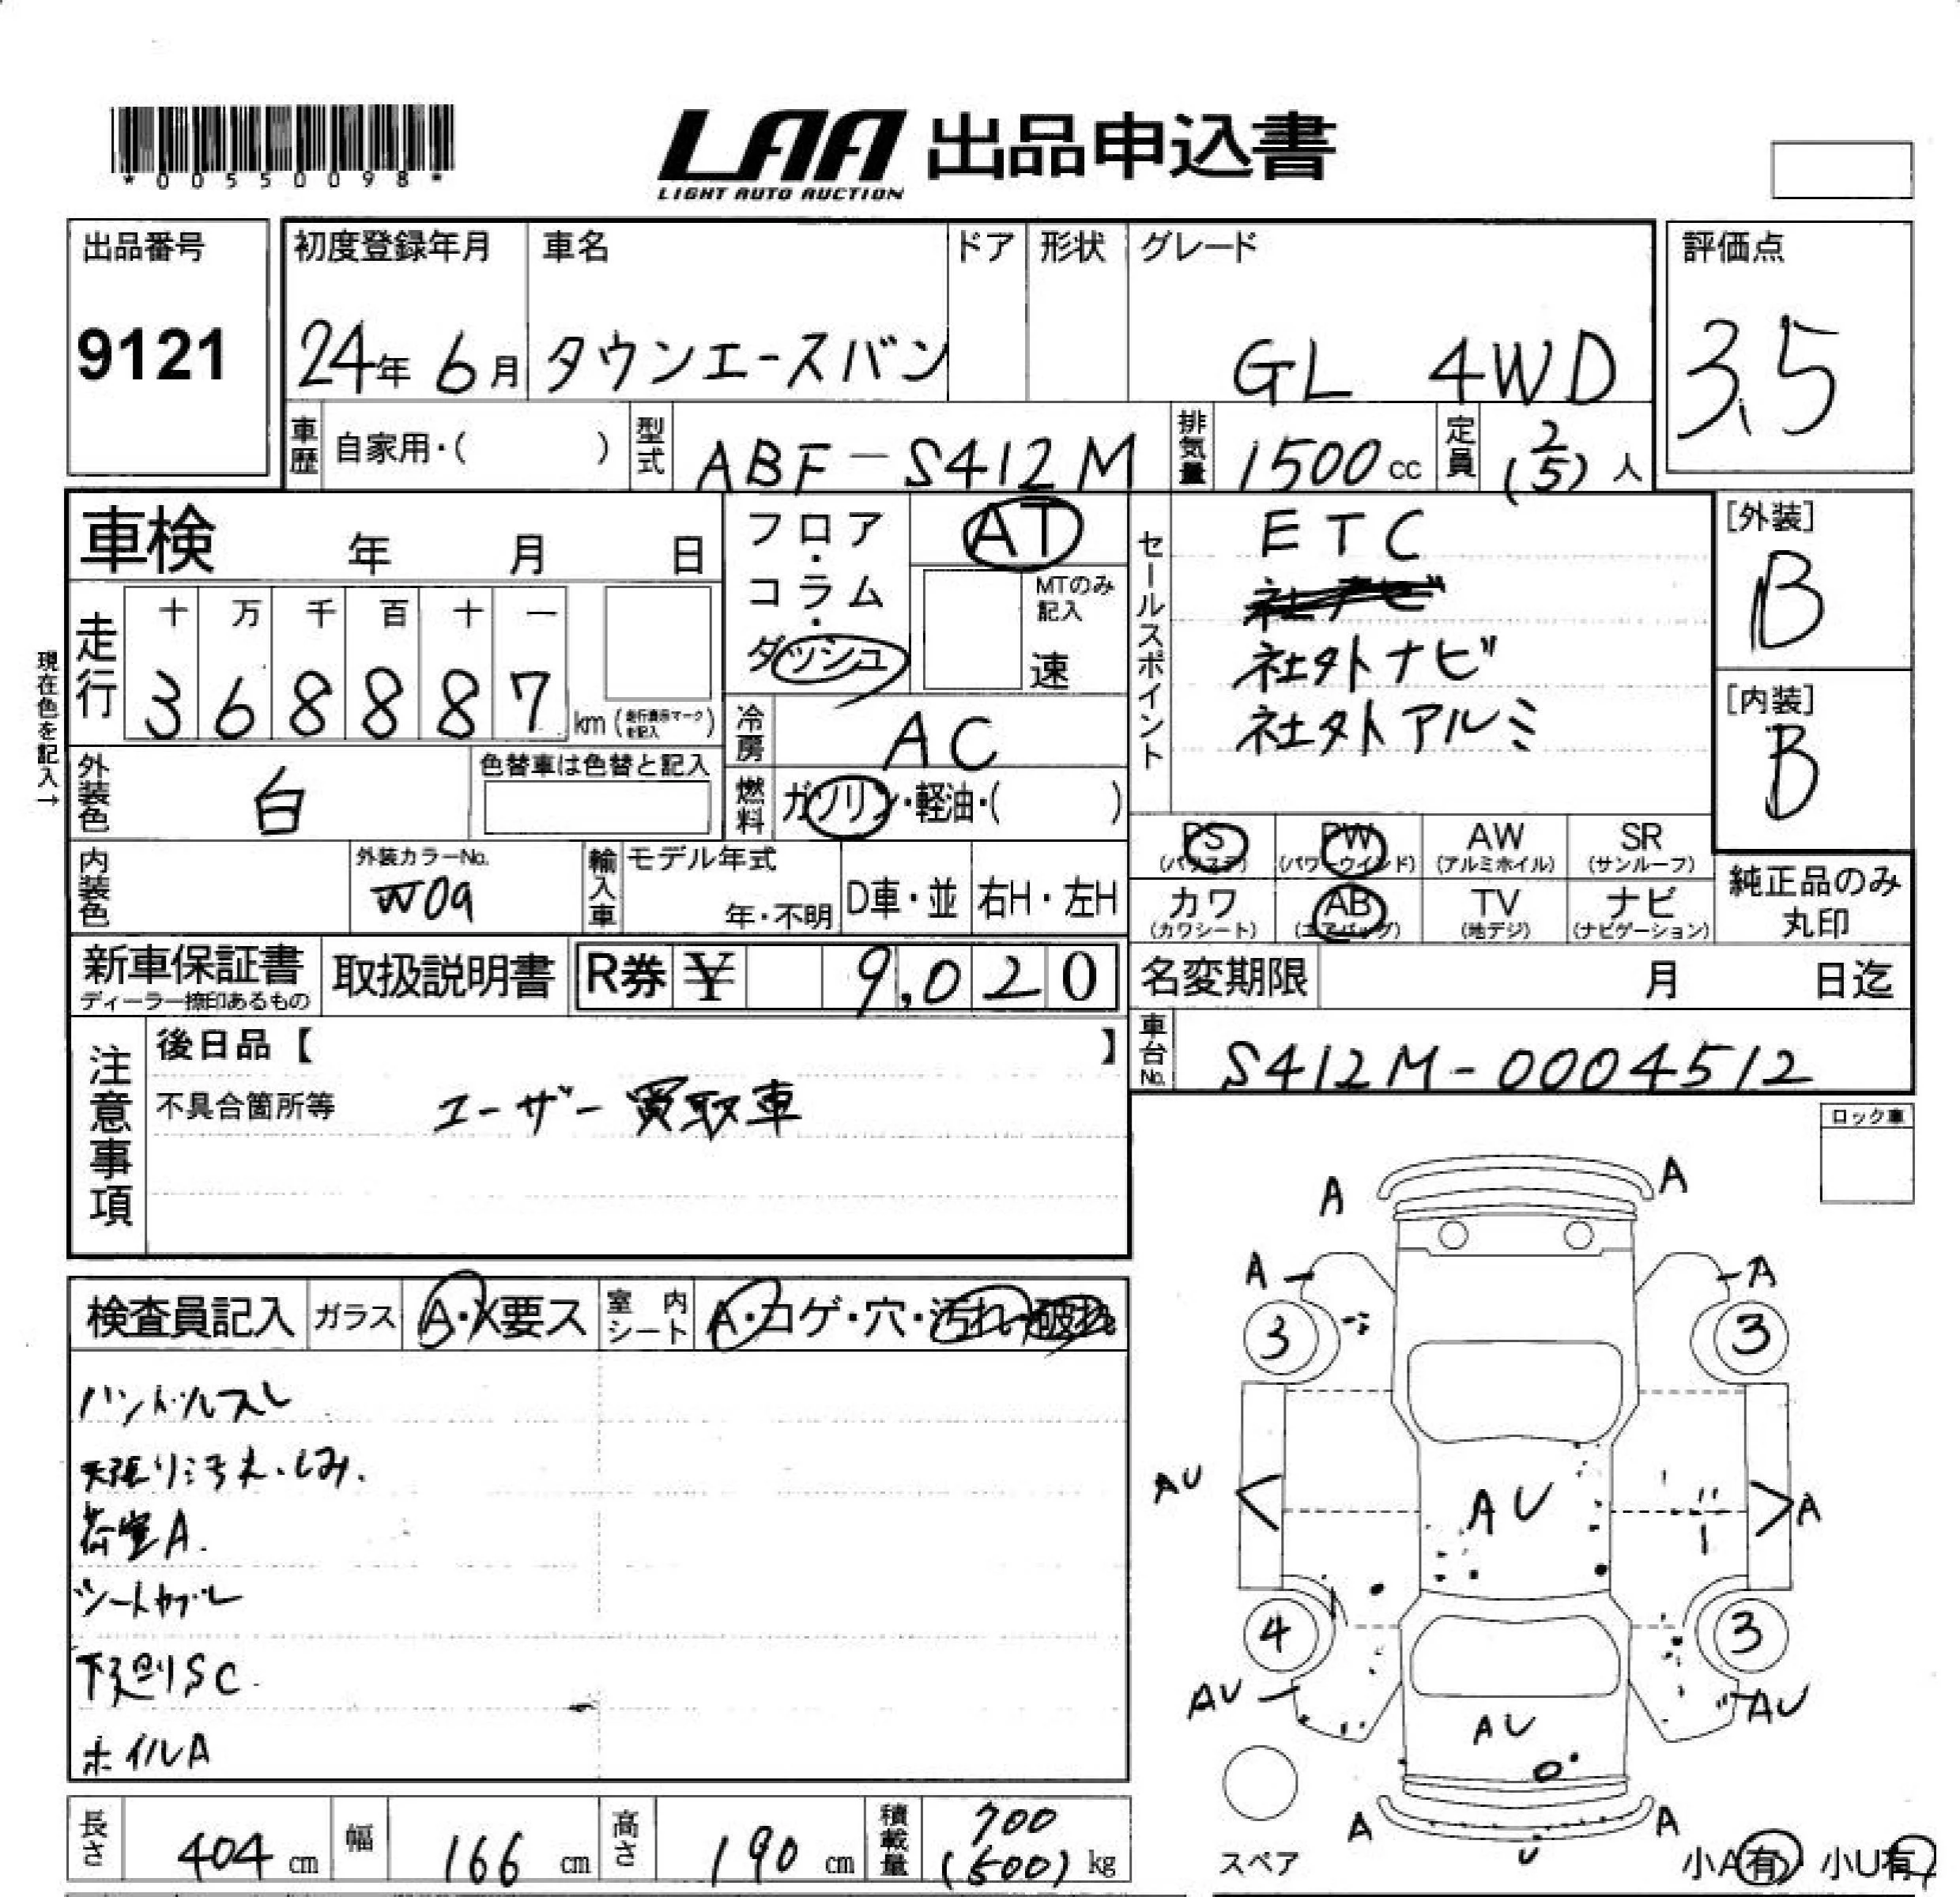 *00550098*
LAA 出品申込書
LIGHT AUTO AUCTION
出品番号 初度登録年月 車名 ドア 形状 グレード 評価点
9121 24年 6月 タウンエースバン GL 4WD 3.5
車歴 自家用・( ) 型式 ABF-S412M 排気量 1500cc 定員 2(5)人
車検 年 月 日
フロア・コラム・ダッシュ AT
MTのみ記入
速
セールスポイント
ETC
社外ナビ
社外アルミ
[外装]
B
[内装]
B
現在色を記入→
走行 十 万 千 百 十 一
3 6 8 8 8 7 km (走行表示マークを記入)
冷房 AC
外装色 白 色替車は色替と記入
燃料 ガソリン・軽油・( )
PS AW SR
PW
(パワステ) (パワーウインド) (アルミホイル) (サンルーフ)
カワ AB TV ナビ
(カワシート) (エアバッグ) (地デジ) (ナビゲーション)
純正品のみ丸印
内装色 外装カラーNo. W09 輸入車 モデル年式 年・不明 D車・並 右H・左H
新車保証書 取扱説明書 R券 ¥ 9,020
ディーラー捺印あるもの
名変期限 月 日迄
車台No. S412M-0004512
注意事項
後日品【 】
不具合箇所等 ユーザー買取車
ロック車
検査員記入 ガラス A・X要ス 室内シート A・コゲ・穴・汚れ・破れ
ハンドルスレ
天張り汚れ・しみ.
荷室A.
シートヤブレ
下廻りSC.
ホイルA
A A
A A
3 3
AU AU A
4 3
AU AU
AU
A A
U
スペア
小A有 小U有
長さ 404cm 幅 166cm 高さ 190cm 積載量 700(500)kg